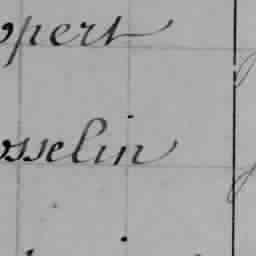 opert
osselin